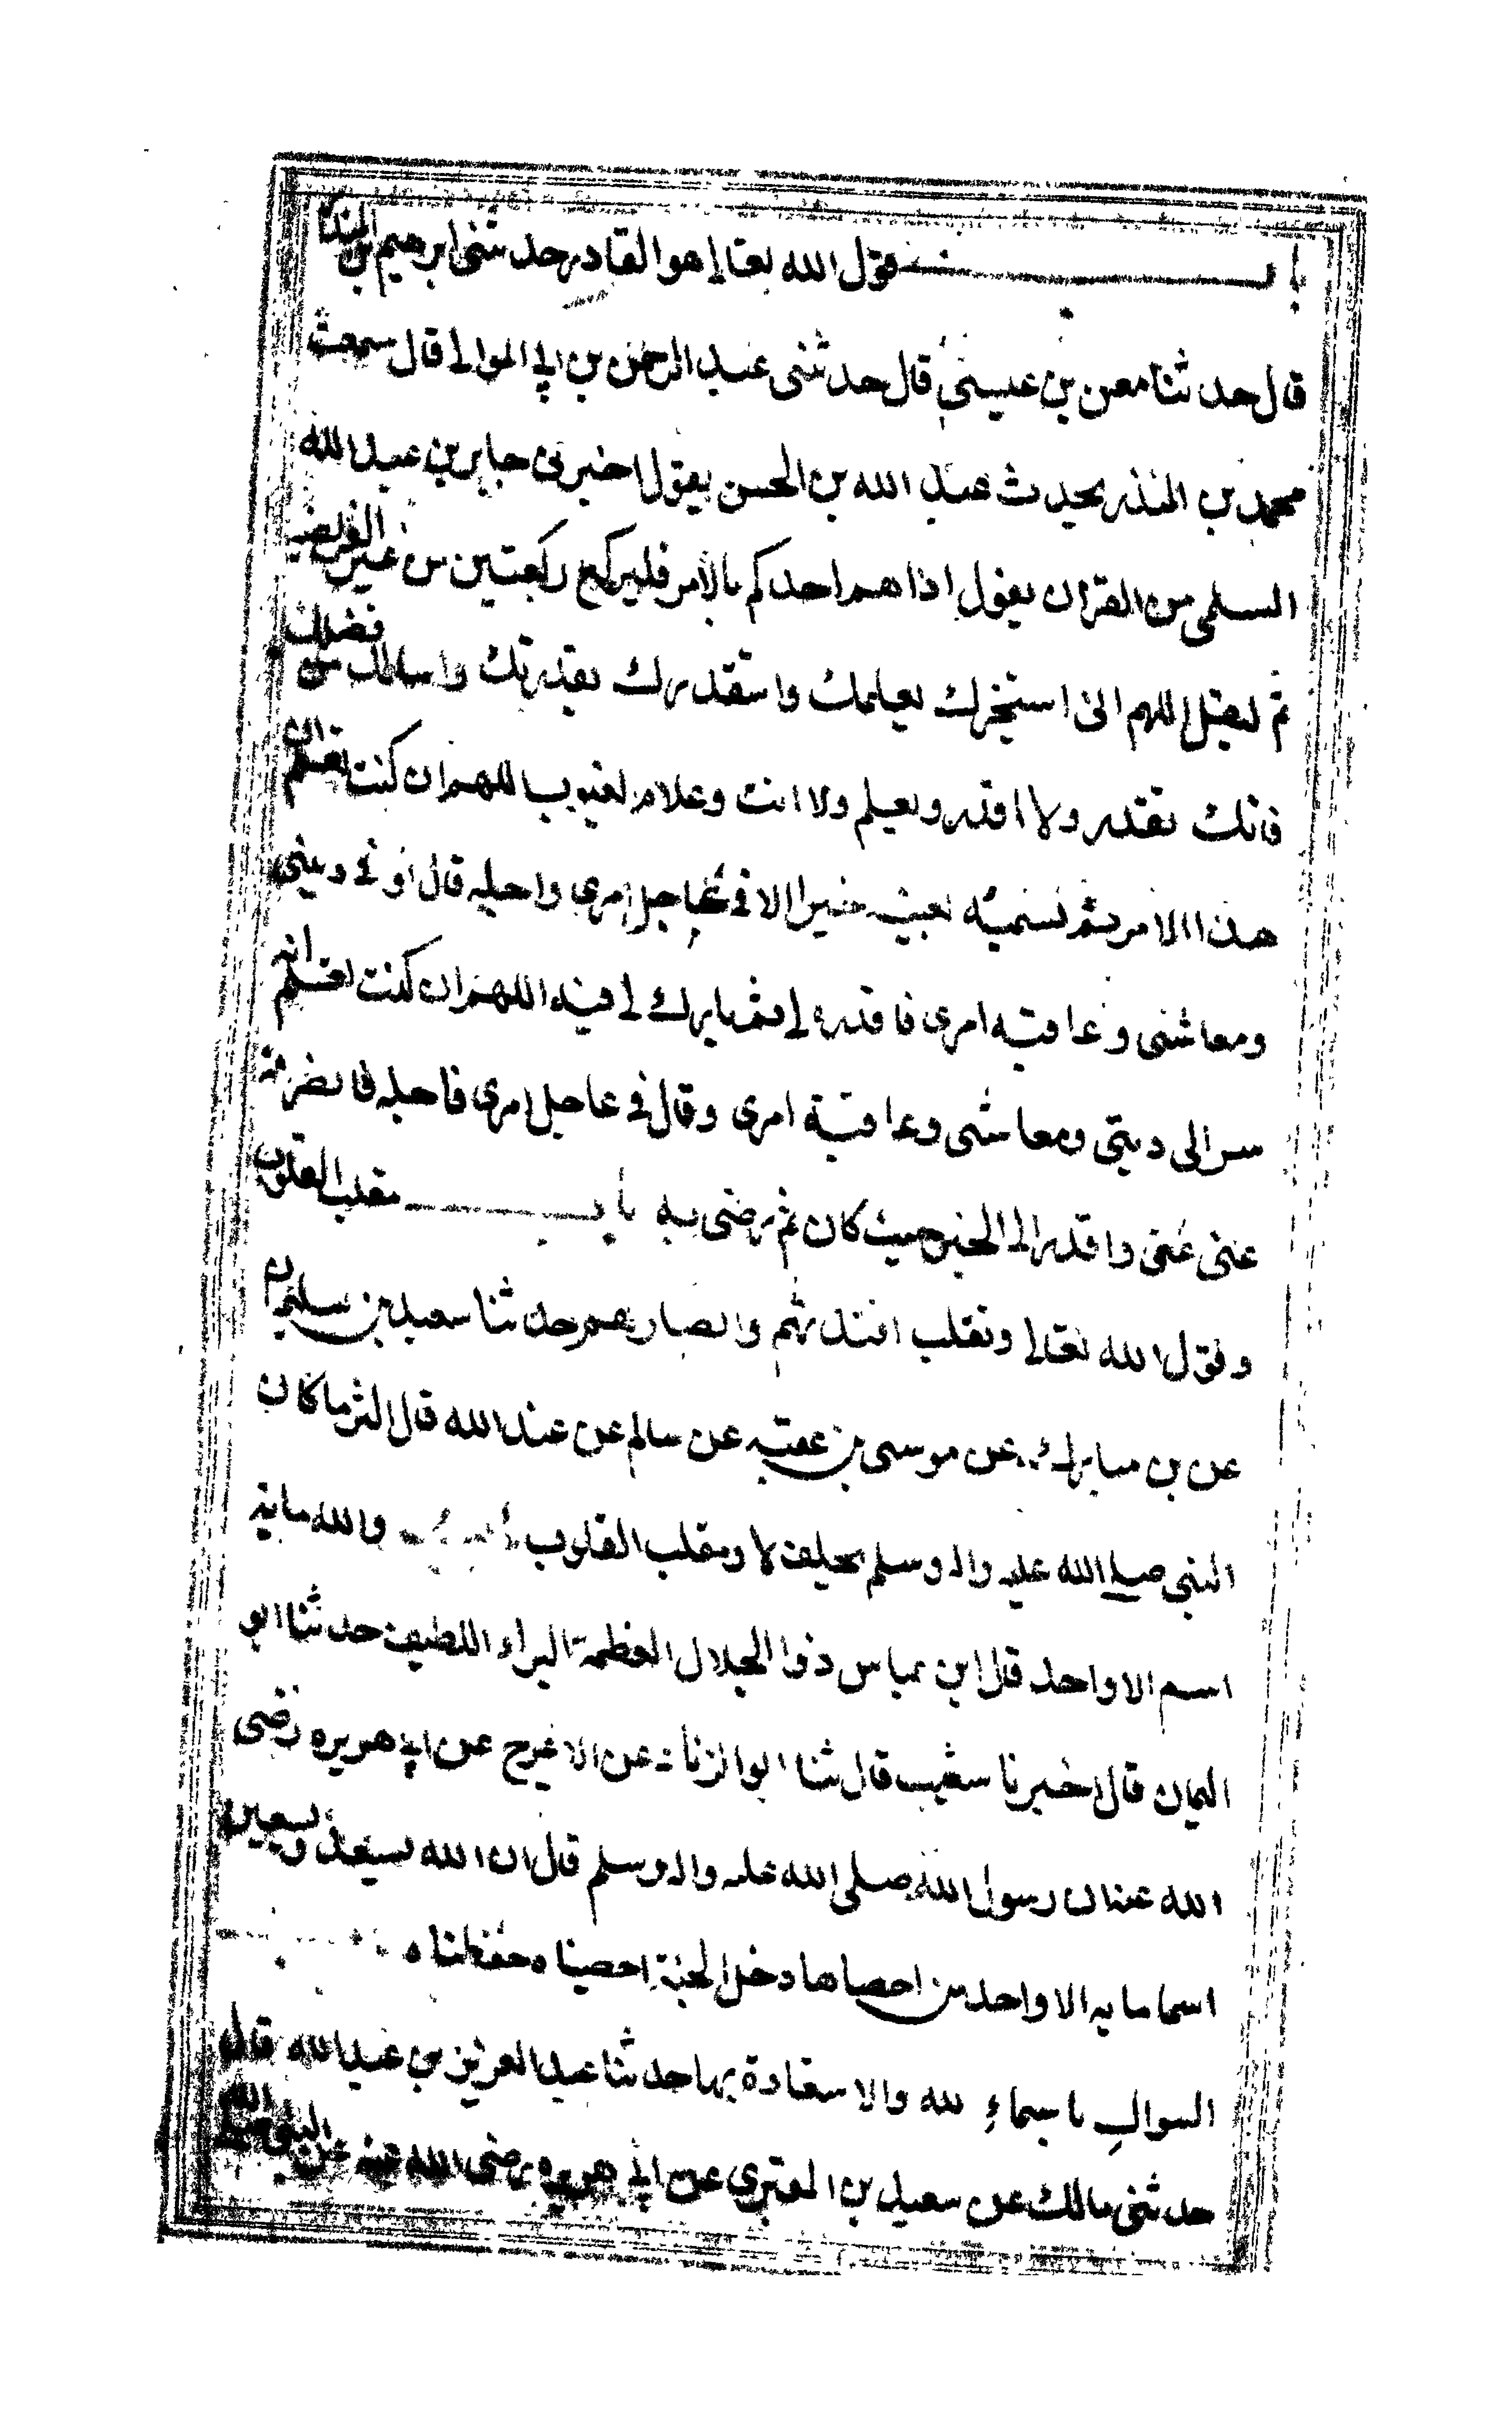 باب قول الله تعالى هو القادر حدثنى ابرهيم بن المنذر
قال حدثنا معن بن عيسى قال حدثنى عبد الرحمن بن ابى الموالى قال سمعت
محمد بن المنذر يحدث عبد الله بن الحسن يقول اخبرنى جابر بن عبد الله
السلمى من القران يقول اذا هم احدكم بالامر فليركع ركعتين من غير الفريضة
ثم ليقل اللهم انى استخيرك بعلمك واستقدرك بقدرتك واسالك من فضلك
فانك تقدر ولا اقدر وتعلم ولا انت وعلام لغيوب اللهم ان كنت تعلم ان
هذا الامر ثم تسميه بعينه خيرا الا فى عاجل امرى واجله قال او فى دينى
ومعاشى وعاقبه امرى فاقدره لى ثم بارك لى فيه اللهم ان كنت تعلم انه
سرالى دينى ومعاشى وعاقبة امرى وقال فى عاجل امرى فاجله فاصرفه
عنى عنى واقدر الى الخير حيث كان ثم رضى به باب مقلب القلوب
وقول الله تعالى ونقلب افئدتهم وابصارهم حدثنا سعيد بن سليمان
عن بن مبارك عن موسى بن عقبه عن سالم عن عبد الله قال اكثر ما كان
النبى صلى الله عليه واله وسلم يحلف لا ومقلب القلوب والله مايه
اسم الا واحد قال ابن عباس ذوا الجلال العظمة البراء اللطيف حدثنا ابو
اليمان قال اخبرنا شعيب قال ثنا ابو الزناد عن الاعرج عن ابى هريره رضى
الله عنه ان رسول الله صلى الله عليه واله وسلم قال ان الله تسعة وتسعين
اسما مايه الا واحد من احصاها دخل الجنة احصيناه حفظناه
السوال باسماء لله والاستعادة بها حدثنا عبد العزيز بن عبد الله قال
حدثنى مالك عن سعيد بن المقبرى عن ابى هريره رضى الله عنه عن النبى صلى الله